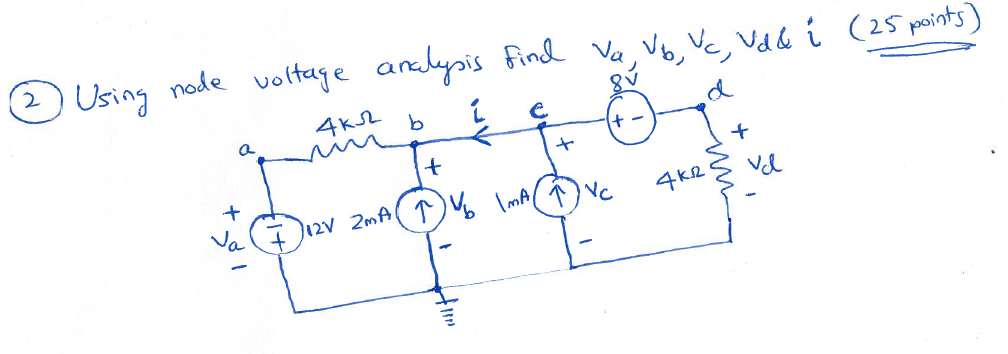 2 Using node voltage analysis find Va, Vb, Vc, Vd & i (25 points)
8V
d
4kΩ b i c
a
+ -
+ + +
Va -+ 12V 2mA ↑ Vb 1mA ↑ Vc 4kΩ Vd
- - - -